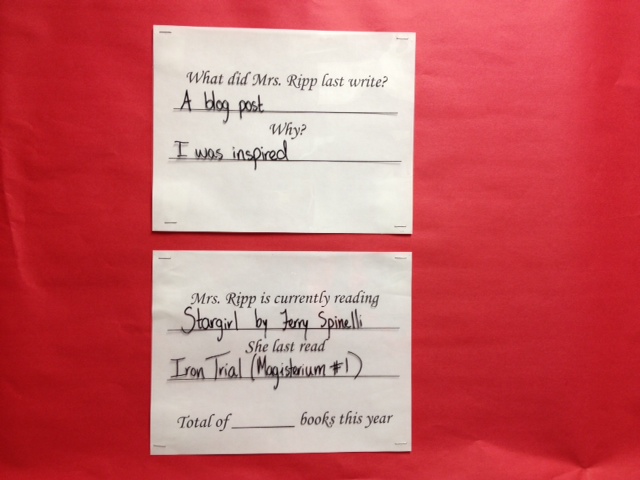 What did Mrs. Ripp last write?
A blog post
Why?
I was inspired
Mrs. Ripp is currently reading
Stargirl by Jerry Spinelli
She last read
Iron Trial (Magisterium #1)
Total of ________ books this year